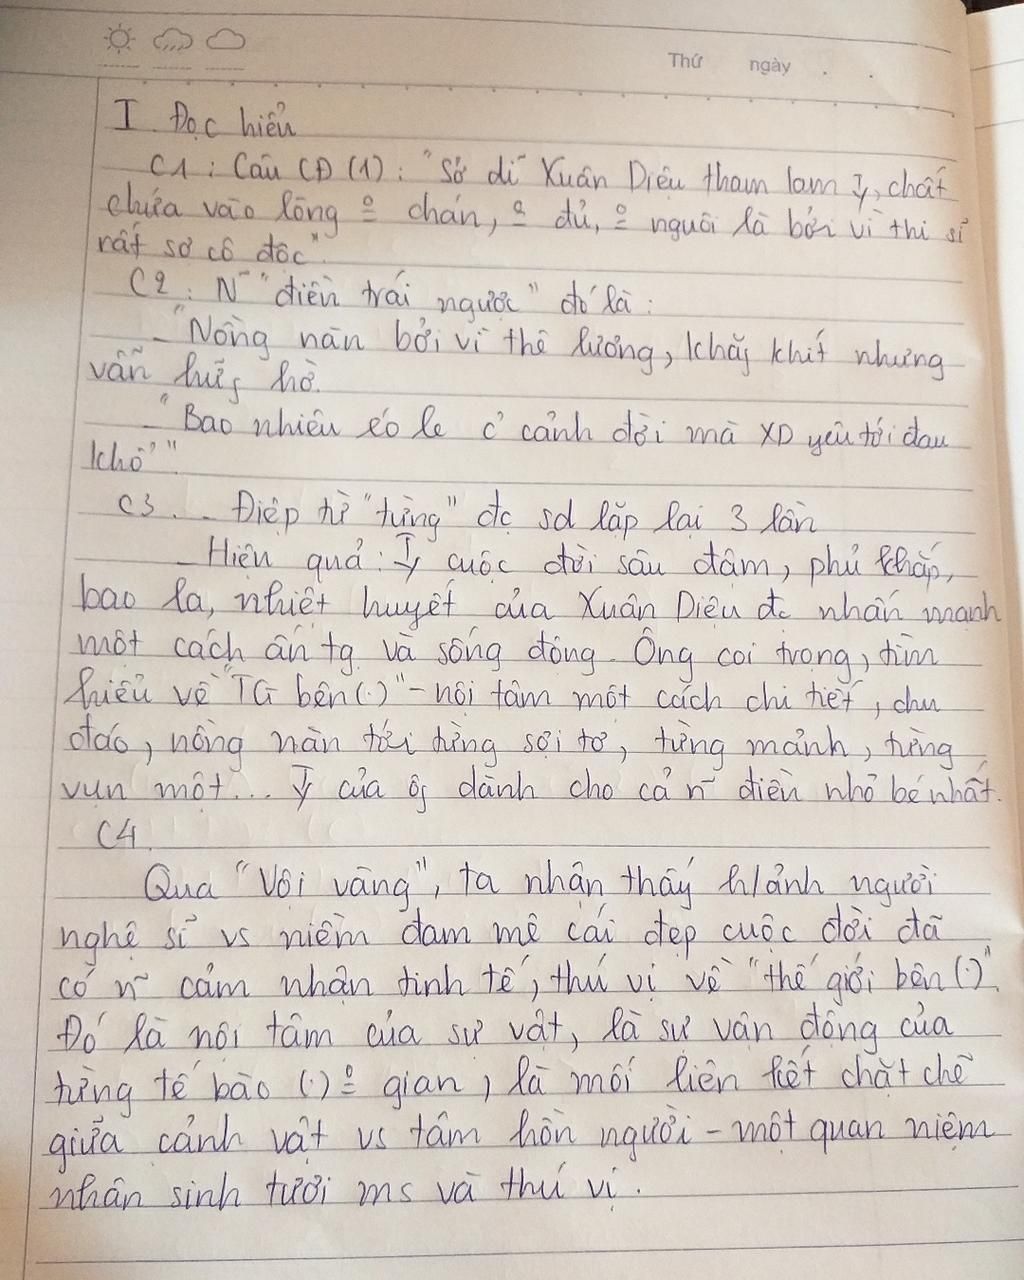 Thứ ngày . .
I. Đọc hiểu
C1 : Câu CĐ (1) : "Sở dĩ Xuân Diệu tham lam y, chất
chứa vào lòng º chán, º đủ, º nguôi là bởi vì thi sĩ
rất sợ cô độc".
C2 : N~ "điển trái ngược" đó là :
- "Nồng nàn bởi vì thê lương, khăng khít nhưng
vẫn hững hờ.
- "Bao nhiêu éo le c̉ cảnh đời mà XD yêu tới đau
khổ".
C3. - Điệp từ "từng" đc sd lặp lại 3 lần
- Hiệu quả : Ty cuộc đời sâu đậm, phủ khắp,
bao la, nhiệt huyết của Xuân Diệu đc nhấn mạnh
một cách ấn tg và sống động. Ông coi trọng, tìm
hiểu về "TG bên (.)" - nội tâm một cách chi tiết, chu
đáo, nồng nàn tới từng sợi tơ, từng mảnh, từng
vụn một... Ty của ôg dành cho cả n~ điền nhỏ bé nhất.
C4.
Qua "Vội vàng", ta nhận thấy h/ảnh người
nghệ sĩ vs niềm đam mê cái đẹp cuộc đời đã
có n~ cảm nhận tinh tế, thú vị về "thế giới bên (.)".
Đó là nội tâm của sự vật, là sự vận động của
từng tế bào (.) º gian, là mối liên kết chặt chẽ
giữa cảnh vật vs tâm hồn người - một quan niệm
nhân sinh tươi ms và thú vị.